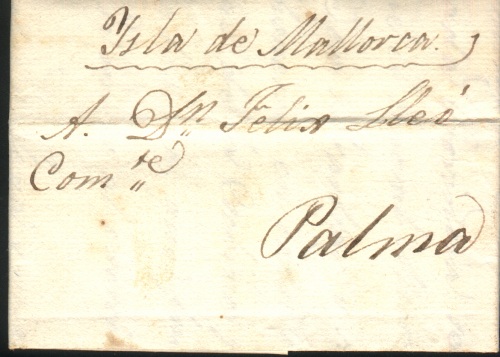 Ysla de Mallorca.
A. Dn. Felix Lleó
Comte
Palma